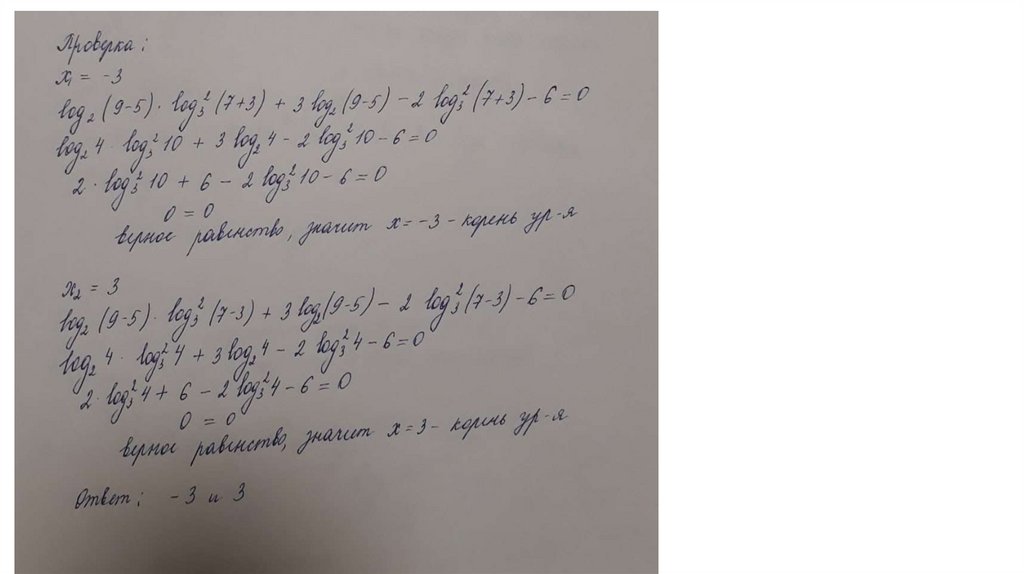 Проверка:
x₁ = -3
log₂ (9-5) · log₃² (7+3) + 3 log₂ (9-5) - 2 log₃² (7+3) - 6 = 0
log₂ 4 · log₃² 10 + 3 log₂ 4 - 2 log₃² 10 - 6 = 0
2 · log₃² 10 + 6 - 2 log₃² 10 - 6 = 0
0 = 0
верное равенство, значит x = -3 - корень ур-я
x₂ = 3
log₂ (9-5) · log₃² (7-3) + 3 log₂ (9-5) - 2 log₃² (7-3) - 6 = 0
log₂ 4 · log₃² 4 + 3 log₂ 4 - 2 log₃² 4 - 6 = 0
2 · log₃² 4 + 6 - 2 log₃² 4 - 6 = 0
0 = 0
верное равенство, значит x = 3 - корень ур-я
Ответ: -3 и 3